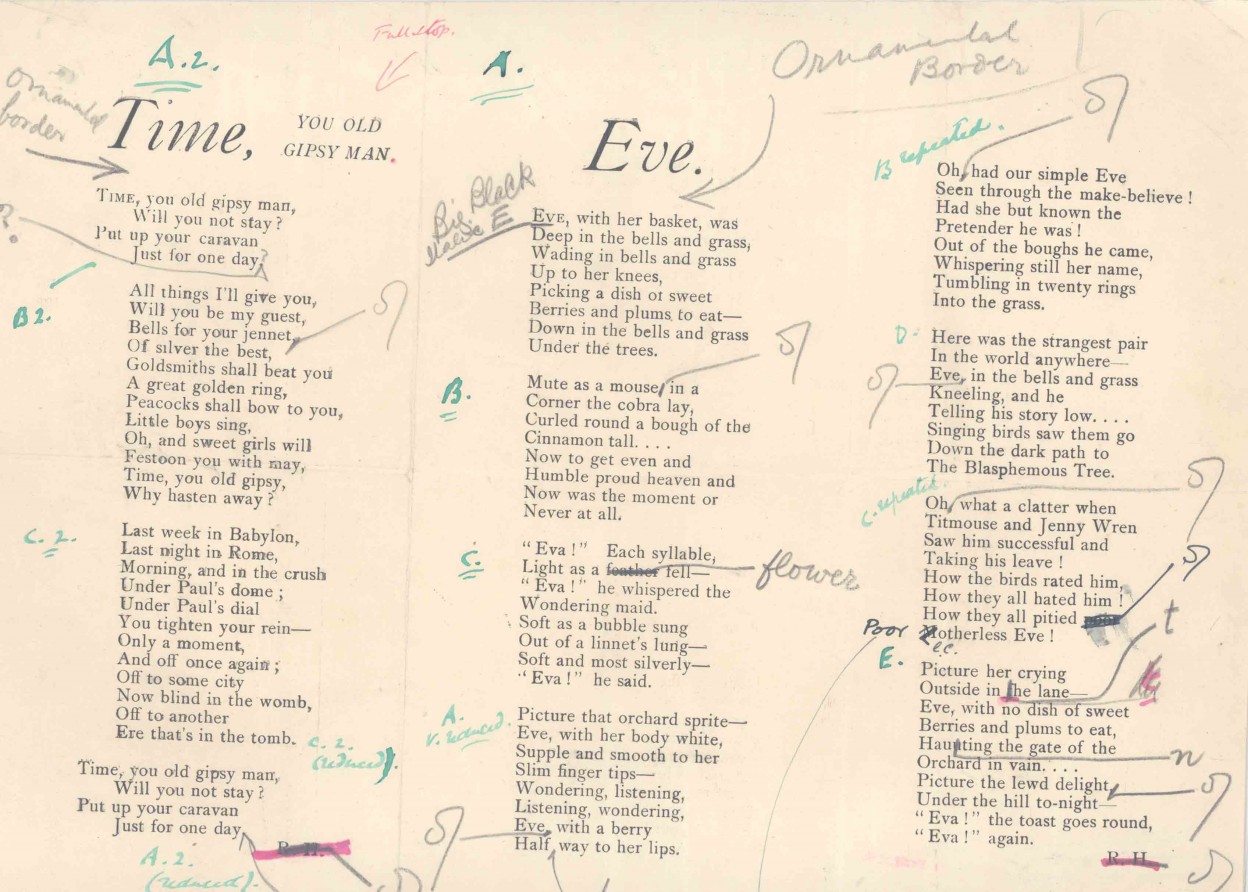 Full stop.
A.2.
Ornamental
border
Time, YOU OLD
GIPSY MAN.
TIME, you old gipsy man,
Will you not stay?
Put up your caravan
Just for one day?
?
All things I'll give you,
B2.
Will you be my guest,
Bells for your jennet,
Of silver the best,
Goldsmiths shall beat you
A great golden ring,
Peacocks shall bow to you,
Little boys sing,
Oh, and sweet girls will
Festoon you with may,
Time, you old gipsy,
Why hasten away?
C.2.
Last week in Babylon,
Last night in Rome,
Morning, and in the crush
Under Paul's dome;
Under Paul's dial
You tighten your rein—
Only a moment,
And off once again;
Off to some city
Now blind in the womb,
Off to another
Ere that's in the tomb.
C.2.
(reduced).
Time, you old gipsy man,
Will you not stay?
Put up your caravan
Just for one day,
R. H.
A.2.
(reduced).
A.
Ornamental
Border
Eve.
Big Black
E
EVE, with her basket, was
Deep in the bells and grass,
Wading in bells and grass
Up to her knees,
Picking a dish of sweet
Berries and plums to eat—
Down in the bells and grass
Under the trees.
B.
Mute as a mouse, in a
Corner the cobra lay,
Curled round a bough of the
Cinnamon tall. . . .
Now to get even and
Humble proud heaven and
Now was the moment or
Never at all.
C.
"Eva!" Each syllable,
Light as a feather fell— flower
"Eva!" he whispered the
Wondering maid.
Soft as a bubble sung
Out of a linnet's lung—
Soft and most silverly—
"Eva!" he said.
A.
v. reduced.
Picture that orchard sprite—
Eve, with her body white,
Supple and smooth to her
Slim finger tips—
Wondering, listening,
Listening, wondering,
Eve, with a berry
Half, way to her lips.
B repeated.
Oh, had our simple Eve
Seen through the make-believe!
Had she but known the
Pretender he was!
Out of the boughs he came,
Whispering still her name,
Tumbling in twenty rings
Into the grass.
D.
Here was the strangest pair
In the world anywhere—
Eve, in the bells and grass
Kneeling, and he
Telling his story low. . . .
Singing birds saw them go
Down the dark path to
The Blasphemous Tree.
C. repeated.
Oh, what a clatter when
Titmouse and Jenny Wren
Saw him successful and
Taking his leave!
How the birds rated him,
How they all hated him!
How they all pitied
Poor Motherless Eve!
l.c.
t
E.
Picture her crying
Outside in the lane—
Eve, with no dish of sweet
Berries and plums to eat,
Haunting the gate of the n
Orchard in vain. . . .
Picture the lewd delight,
Under the hill to-night—
"Eva!" the toast goes round,
"Eva!" again.
R. H.